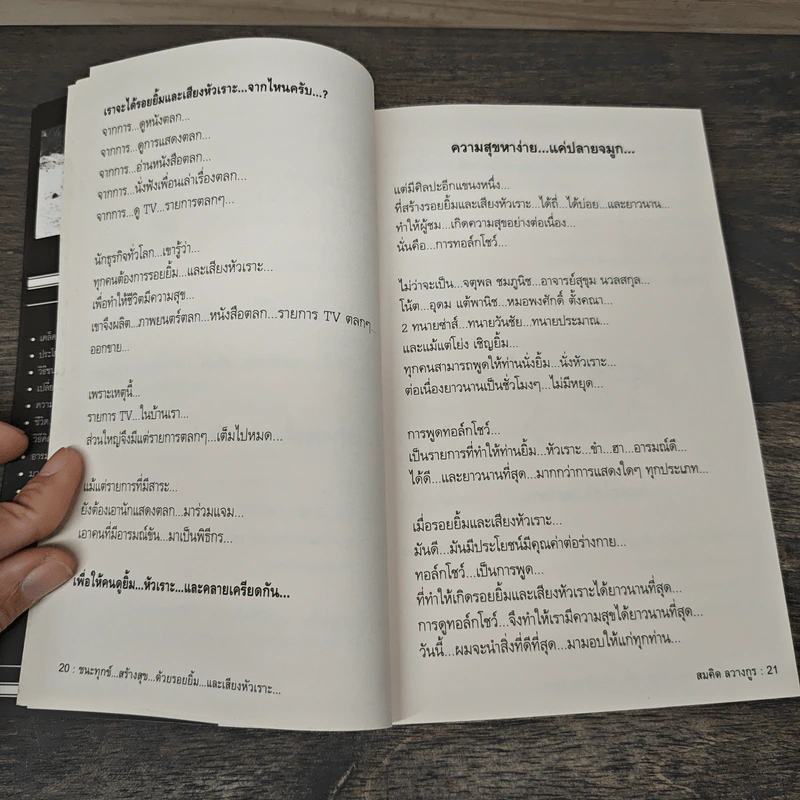 เราจะได้รอยยิ้มและเสียงหัวเราะ...จากไหนครับ...?
จากการ...ดูหนังตลก...
จากการ...ดูการแสดงตลก...
จากการ...อ่านหนังสือตลก...
จากการ...นั่งฟังเพื่อนเล่าเรื่องตลก...
จากการ...ดู TV...รายการตลกๆ...
นักธุรกิจทั่วโลก...เขารู้ว่า...
ทุกคนต้องการรอยยิ้ม...และเสียงหัวเราะ...
เพื่อทำให้ชีวิตมีความสุข...
เขาจึงผลิต...ภาพยนตร์ตลก...หนังสือตลก...รายการ TV ตลกๆ...
ออกขาย...
เพราะเหตุนี้...
รายการ TV...ในบ้านเรา...
ส่วนใหญ่จึงมีแต่รายการตลกๆ...เต็มไปหมด...
แม้แต่รายการที่มีสาระ...
ยังต้องเอานักแสดงตลก...มาร่วมแจม...
เอาคนที่มีอารมณ์ขัน...มาเป็นพิธีกร...
เพื่อให้คนดูยิ้ม...หัวเราะ...และคลายเครียดกัน...
20 : ชนะทุกข์...สร้างสุข...ด้วยรอยยิ้ม...และเสียงหัวเราะ...
ความสุขหาง่าย...แค่ปลายจมูก...
แต่มีศิลปะอีกแขนงหนึ่ง...
ที่สร้างรอยยิ้มและเสียงหัวเราะ...ได้ถี่...ได้บ่อย...และยาวนาน...
ทำให้ผู้ชม...เกิดความสุขอย่างต่อเนื่อง...
นั่นคือ...การทอล์กโชว์...
ไม่ว่าจะเป็น...จตุพล ชมภูนิช...อาจารย์สุขุม นวลสกุล...
โน้ต...อุดม แต้พานิช...หมอพงศ์ศักดิ์ ตั้งคณา...
2 ทนายซ่าส์...ทนายวันชัย...ทนายประมาณ...
และแม้แต่โย่ง เชิญยิ้ม...
ทุกคนสามารถพูดให้ท่านนั่งยิ้ม...นั่งหัวเราะ...
ต่อเนื่องยาวนานเป็นชั่วโมงๆ...ไม่มีหยุด...
การพูดทอล์กโชว์...
เป็นรายการที่ทำให้ท่านยิ้ม...หัวเราะ...ขำ...ฮา...อารมณ์ดี...
ได้ดี...และยาวนานที่สุด...มากกว่าการแสดงใดๆ ทุกประเภท...
เมื่อรอยยิ้มและเสียงหัวเราะ...
มันดี...มันมีประโยชน์มีคุณค่าต่อร่างกาย...
ทอล์กโชว์...เป็นการพูด...
ที่ทำให้เกิดรอยยิ้มและเสียงหัวเราะได้ยาวนานที่สุด...
การดูทอล์กโชว์...จึงทำให้เรามีความสุขได้ยาวนานที่สุด...
วันนี้...ผมจะนำสิ่งที่ดีที่สุด...มามอบให้แก่ทุกท่าน...
สมคิด ลวางกูร : 21